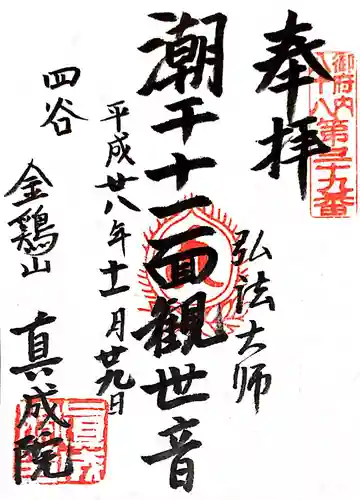 奉拝
御府内
八十八
第三十九番
弘法大師
潮干十一面観世音
平成廿八年十一月廿九日
四谷
金鶏山
真成院